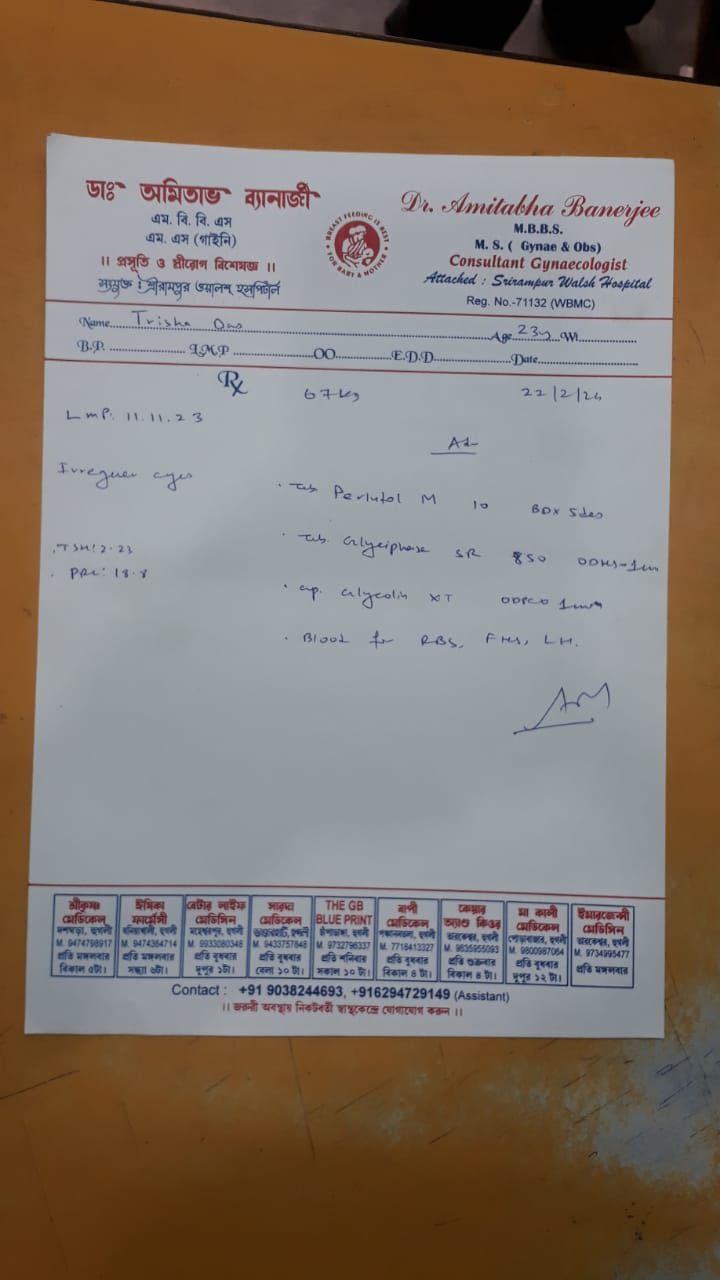 ডাঃ অমিতাভ ব্যানার্জী
এম. বি. বি. এস
এম. এস (গাইনি)
।। প্রসূতি ও স্ত্রীরোগ বিশেষজ্ঞ ।।
সংযুক্ত : শ্রীরামপুর ওয়ালশ হসপিটাল
BREAST FEEDING IS BEST
FOR BABY & MOTHER
Dr. Amitabha Banerjee
M.B.B.S.
M. S. ( Gynae & Obs)
Consultant Gynaecologist
Attached : Srirampur Walsh Hospital
Reg. No.-71132 (WBMC)
Name. Trisha Das Age 23y Wt.
B.P. L.M.P E.D.D Date
Rx 67kg 22/2/24
LMP: 11.11.23
Adv
Irregular cycles
Tab. M 10 BDX 5days
TSH: 2.23
Tab. Glyciphage SR 850
PRL: 18.8
Cap. XT
Blood for RBS, FHS, LH.
শ্রীকৃষ্ণ মেডিকেল
M. 9474798917
প্রতি মঙ্গলবার
বিকাল ৫টা।
ঈশিকা ফার্মেসী
M. 9474364714
প্রতি মঙ্গলবার
সন্ধ্যা ৬টা।
বেটার লাইফ মেডিসিন
M. 9933080348
প্রতি বুধবার
দুপুর ১টা।
সারদা মেডিকেল
M. 9433757848
প্রতি বুধবার
বেলা ১০ টা।
THE GB BLUE PRINT
M. 9732796337
প্রতি শনিবার
সকাল ১০ টা।
বাপী মেডিকেল
M. 7718413327
প্রতি বুধবার
বিকাল ৪ টা।
কেয়ার অ্যাণ্ড কিওর
তারকেশ্বর, হুগলী
M. 9635955093
প্রতি শুক্রবার
বিকাল ৪ টা।
মা কালী মেডিকেল
M. 9800987064
প্রতি বুধবার
দুপুর ১২ টা।
ইমারজেন্সী মেডিসিন
তারকেশ্বর, হুগলী
M. 9734995477
প্রতি মঙ্গলবার
Contact : +91 9038244693, +916294729149 (Assistant)
।। জরুরী অবস্থায় নিকটবর্তী স্বাস্থ্যকেন্দ্রে যোগাযোগ করুন ।।